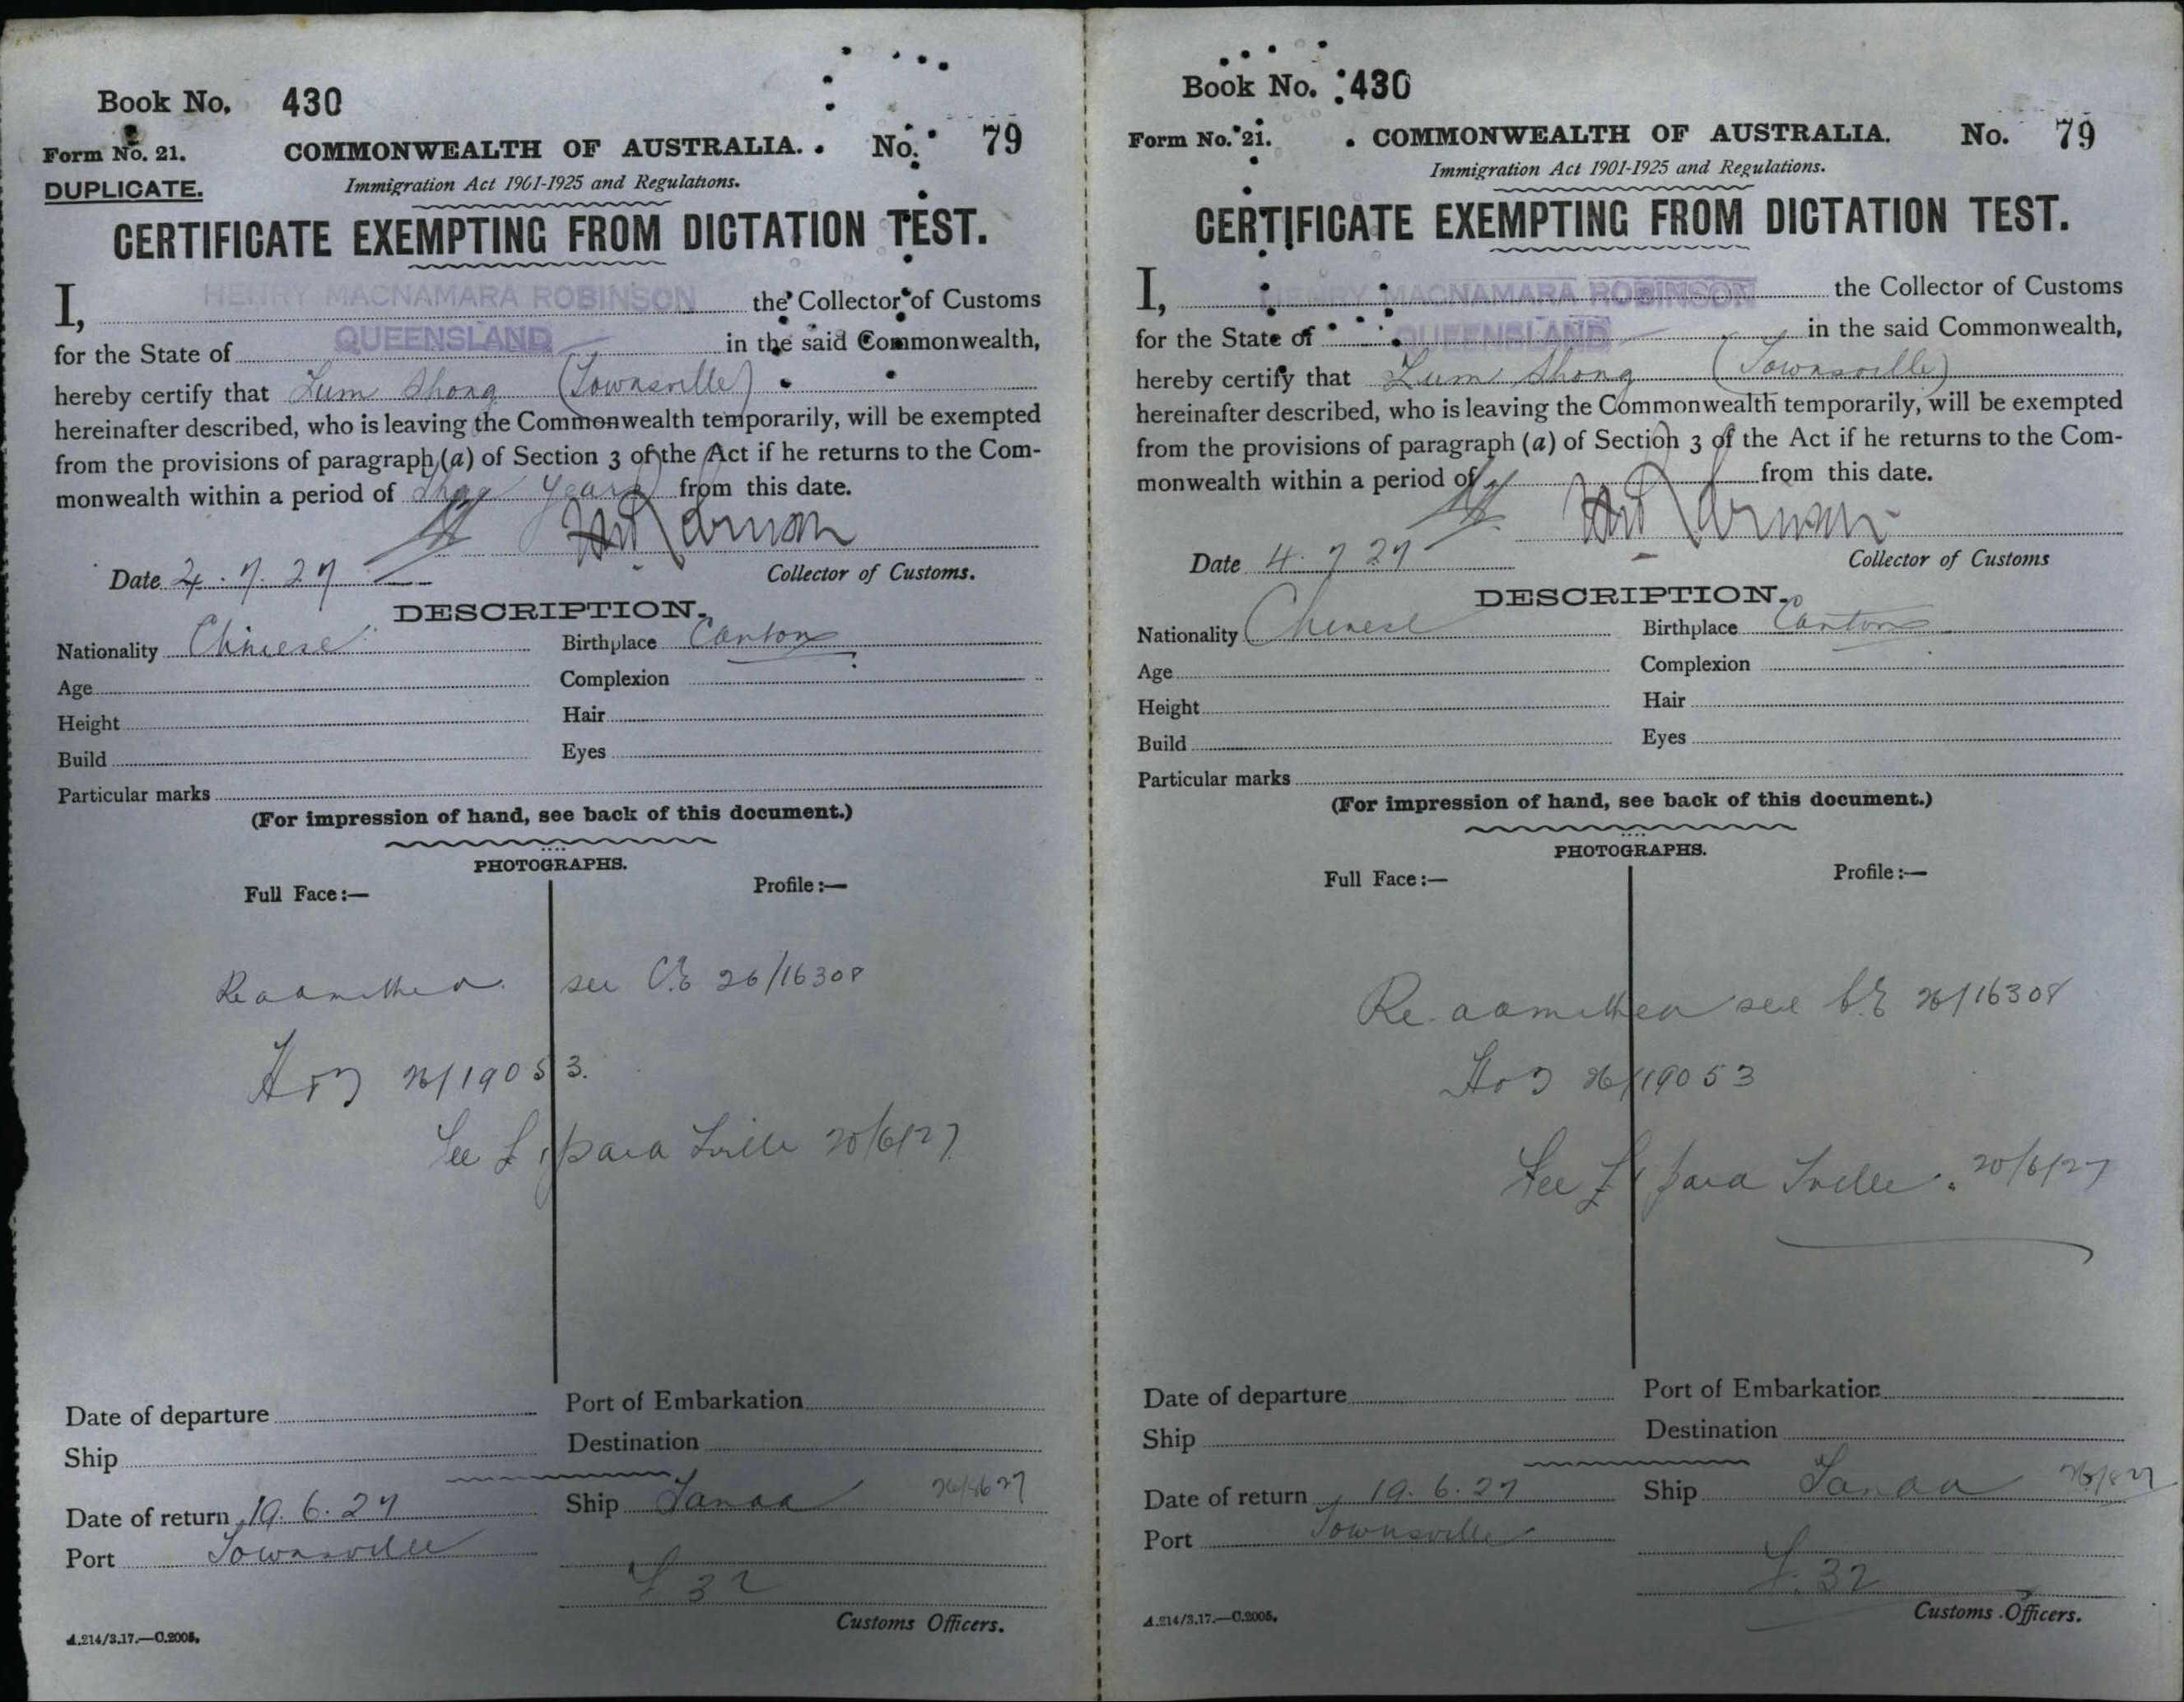 Book No. 430
Form No. 21. COMMONWEALTH OF AUSTRALIA. No. 79
DUPLICATE. Immigration Act 1901-1925 and Regulations.
CERTIFICATE EXEMPTING FROM DICTATION TEST.
I, HENRY MACNAMARA ROBINSON the Collector of Customs
for the State of QUEENSLAND in the said Commonwealth,
hereby certify that Lum Shong (Townsville)
hereinafter described, who is leaving the Commonwealth temporarily, will be exempted
from the provisions of paragraph (a) of Section 3 of the Act if he returns to the Com-
monwealth within a period of years from this date.
Date 4.7.27 Collector of Customs.
DESCRIPTION.
Nationality Chinese Birthplace Canton
Age Complexion
Height Hair
Build Eyes
Particular marks
(For impression of hand, see back of this document.)
PHOTOGRAPHS.
Full Face:— Profile:—
Readmitted see C.E 26/16308
26/19053.
See para 20/6/27
Date of departure Port of Embarkation
Ship Destination
Date of return 19.6.27 Ship Tanda
Port Townsville
F 32
Customs Officers.
A.214/3.17.—C.2005.
Book No. 430
Form No. 21. COMMONWEALTH OF AUSTRALIA. No. 79
Immigration Act 1901-1925 and Regulations.
CERTIFICATE EXEMPTING FROM DICTATION TEST.
I, HENRY MACNAMARA ROBINSON the Collector of Customs
for the State of QUEENSLAND in the said Commonwealth,
hereby certify that Lum Shong (Townsville)
hereinafter described, who is leaving the Commonwealth temporarily, will be exempted
from the provisions of paragraph (a) of Section 3 of the Act if he returns to the Com-
monwealth within a period of from this date.
Date 4.7.27 Collector of Customs
DESCRIPTION.
Nationality Chinese Birthplace Canton
Age Complexion
Height Hair
Build Eyes
Particular marks
(For impression of hand, see back of this document.)
PHOTOGRAPHS.
Full Face:— Profile:—
Re-admitted see C.E 26/16308
26/19053
See para 20/6/27
Date of departure Port of Embarkation
Ship Destination
Date of return 19.6.27 Ship Tanda
Port Townsville
F. 32
Customs Officers.
A.214/3.17.—C.2005.